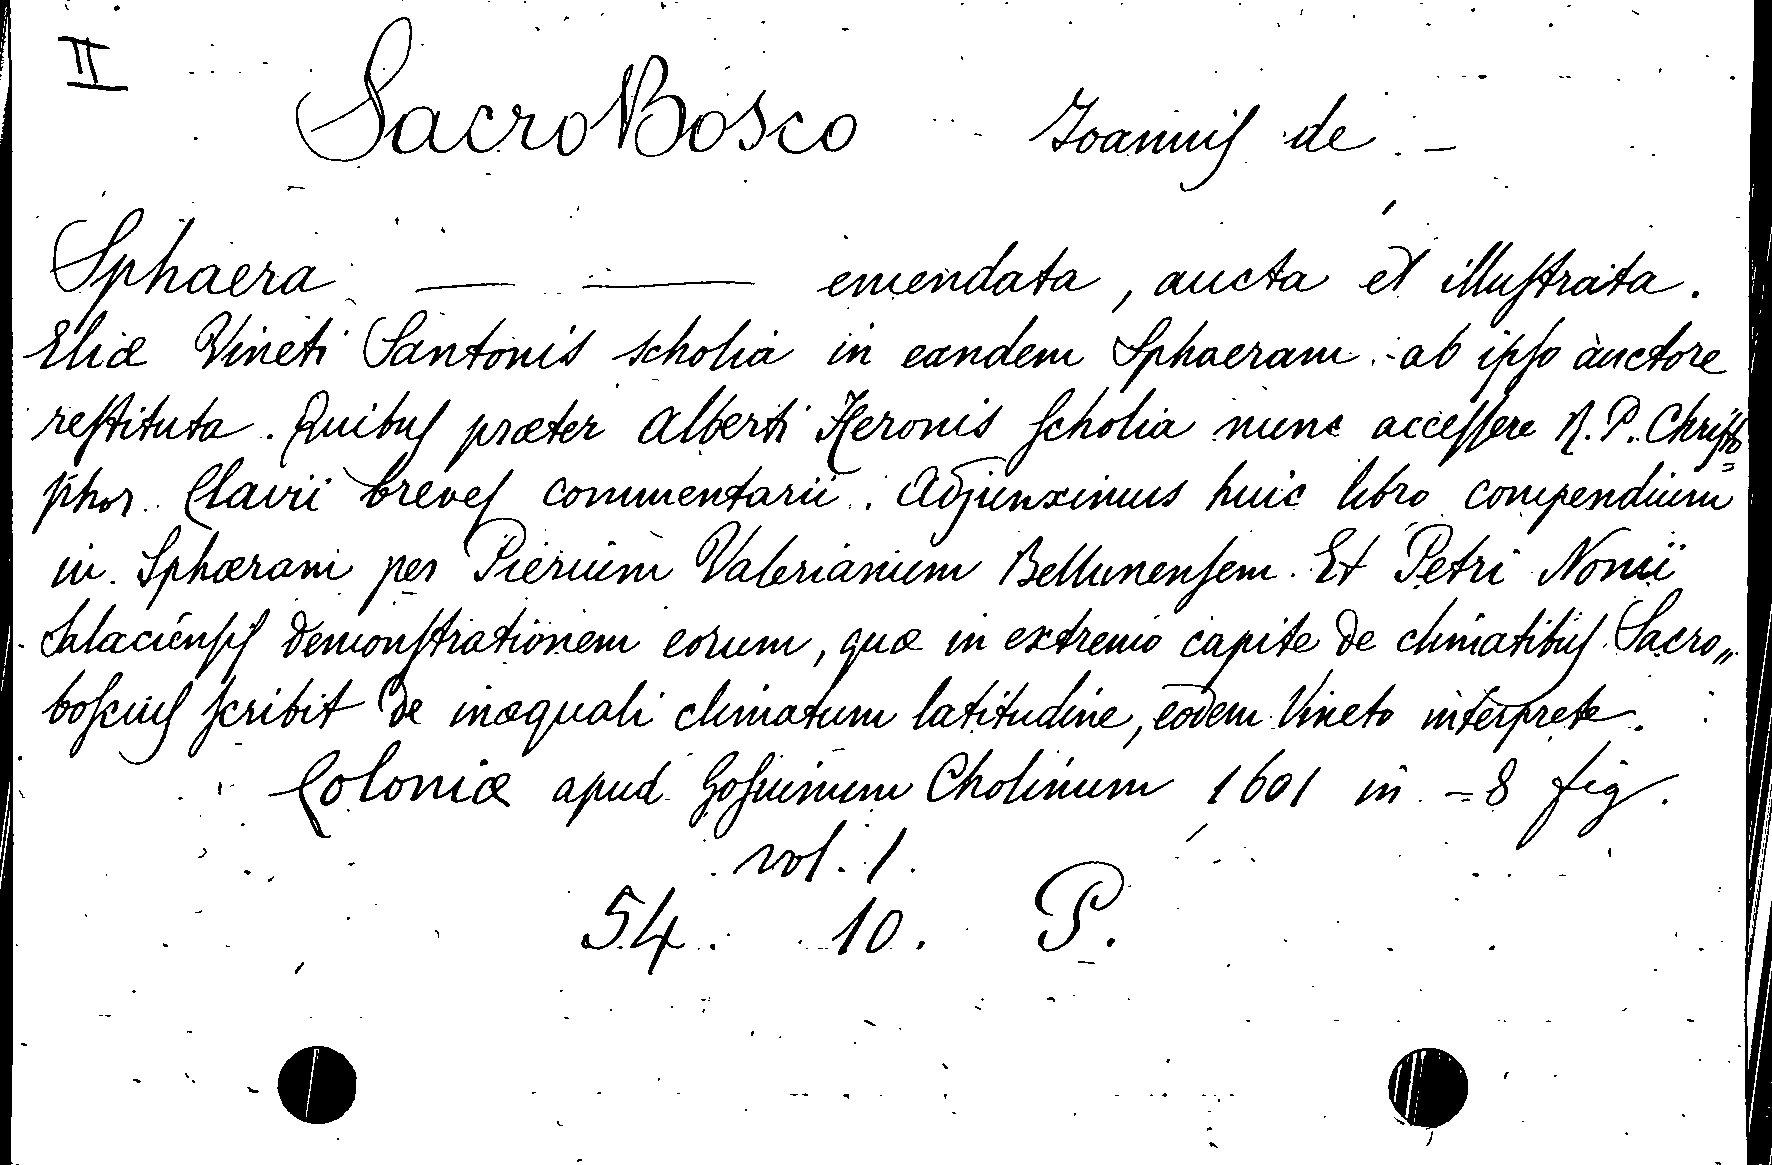 II
SacroBosco Joannis de -
Sphaera — — emendata, aucta et illuſtrata.
Eliæ Vineti Santonis scholia in eandem Sphaeram ab ipſo auctore
reſtituta. Quibuſ præter Alberti Heronis ſcholia nunc acceſſere R. P. Chriſto=
phor. Clavii breveſ commentarii. Adjunximus huic libro compendium
in Sphæram per Pierium Valerianum Bellunenſem. Et Petri Nonii
Salacienſiſ demonſtrationem eorum, quæ in extremo capite de climatibuſ Sacro„
boſciuſ ſcribit de inæquali climatum latitudine, eodem Vineto interprete.
Coloniæ apud Goſuinum Cholinum 1601 in =8 fig.
vol. 1.
54. 10. P.